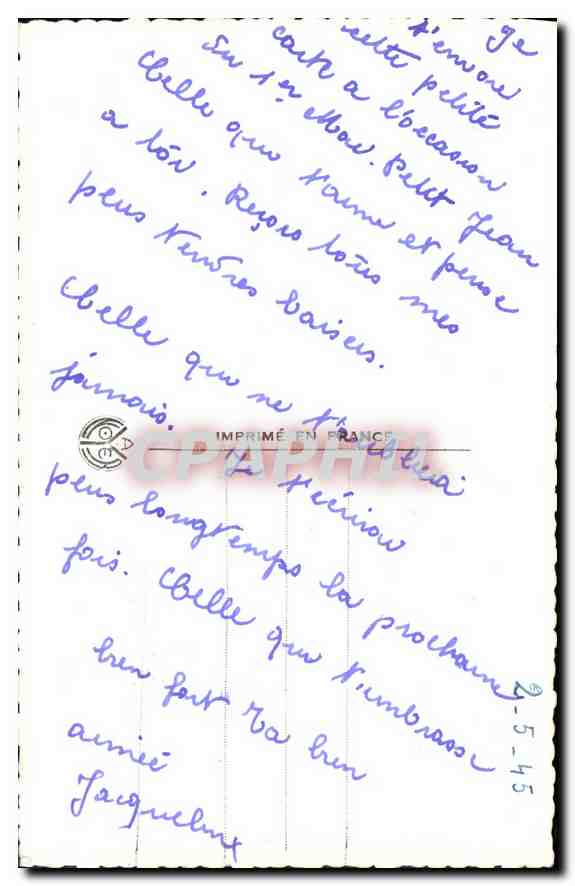 Je
t'envoie
cette petite
carte a l'occasion
du 1er Mai. Petit Jean
Celle qui t'aime et pense
a toi. Reçois tous mes
plus tendres baisers.
Celle qui ne t'oublira
jamais.
IMPRIMÉ EN FRANCE
CPAPHIL
Je t'écrirai
plus longtemps la prochaine
fois. Celle qui t'embrasse
bien fort Ta bien
aimée
Jacqueline
2-5-45